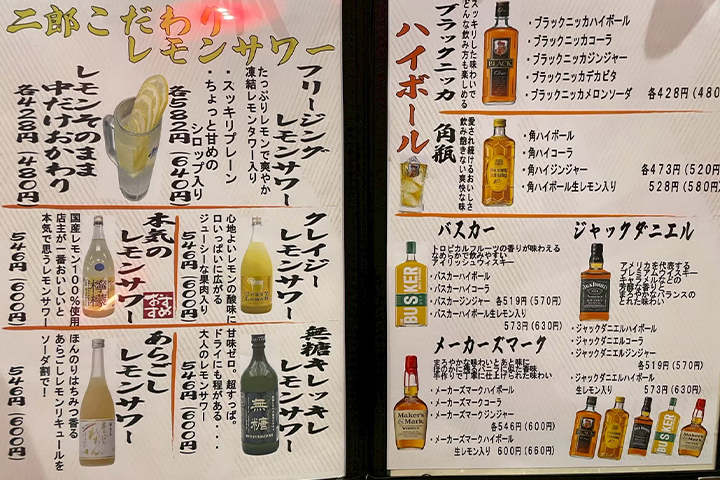 二郎こだわり
レモンサワー
フリージング
レモンサワー
たっぷりレモンで爽やか
凍結レモンタワー入り
・スッキリプレーン
・ちょっと甘めの
シロップ入り
各582円(640円)
レモンそのまま
中だけおかわり
各428円(480円)
クレイジー
レモンサワー
心地よいレモンの酸味に
口いっぱいに広がる
ジューシーな果肉入り
546円(600円)
本気の
レモンサワー
おすすめ
国産レモン100%使用
店主が一番おいしいと
本気で思うレモンサワー
546円(600円)
無糖キレッキレ
レモンサワー
甘味ゼロ。超すっぱ。
ドライにも程がある・・・
大人のレモンサワー
546円(600円)
無糖
あらごし
レモンサワー
ほんのりはちみつ香る
あらごしレモンリキュールを
ソーダ割で!
546円(600円)
ハイボール
ブラックニッカ
スッキリした味わいで
どんな飲み方も楽しめる
BLACK
・ブラックニッカハイボール
・ブラックニッカコーラ
・ブラックニッカジンジャー
・ブラックニッカデカビタ
・ブラックニッカメロンソーダ 各428円(480
角瓶
愛され続けるおいしさ
飲み飽きない爽快な味
・角ハイボール
・角ハイコーラ
・角ハイジンジャー 各473円(520円
・角ハイボール生レモン入り 528円(580円)
バスカー
トロピカルフルーツの香りが味わえる
なめらかで飲みやすい
アイリッシュウイスキー
BUSKER
・バスカーハイボール
・バスカーハイコーラ
・バスカージンジャー 各519円(570円)
・バスカーハイボール生レモン入り
573円(630円)
メーカーズマーク
まろやかな味わいとあと味に
ほのかに残るバニラに似た香味
手作りで丁寧に仕上げられた味わい
Maker's
Mark
・メーカーズマークハイボール
・メーカーズマークコーラ
・メーカーズマークジンジャー
各546円(600円)
・メーカーズマークハイボール
生レモン入り 600円(660円)
ジャックダニエル
JACK DANIEL'S
アメリカを代表する
プレミアムウイスキー
キャラメルなどの
芳醇な香りと
まろやかなバランスの
とれた味わい
・ジャックダニエルハイボール
・ジャックダニエルコーラ
・ジャックダニエルジンジャー
各519円(570円)
・ジャックダニエルハイボール
生レモン入り 573円(630円)